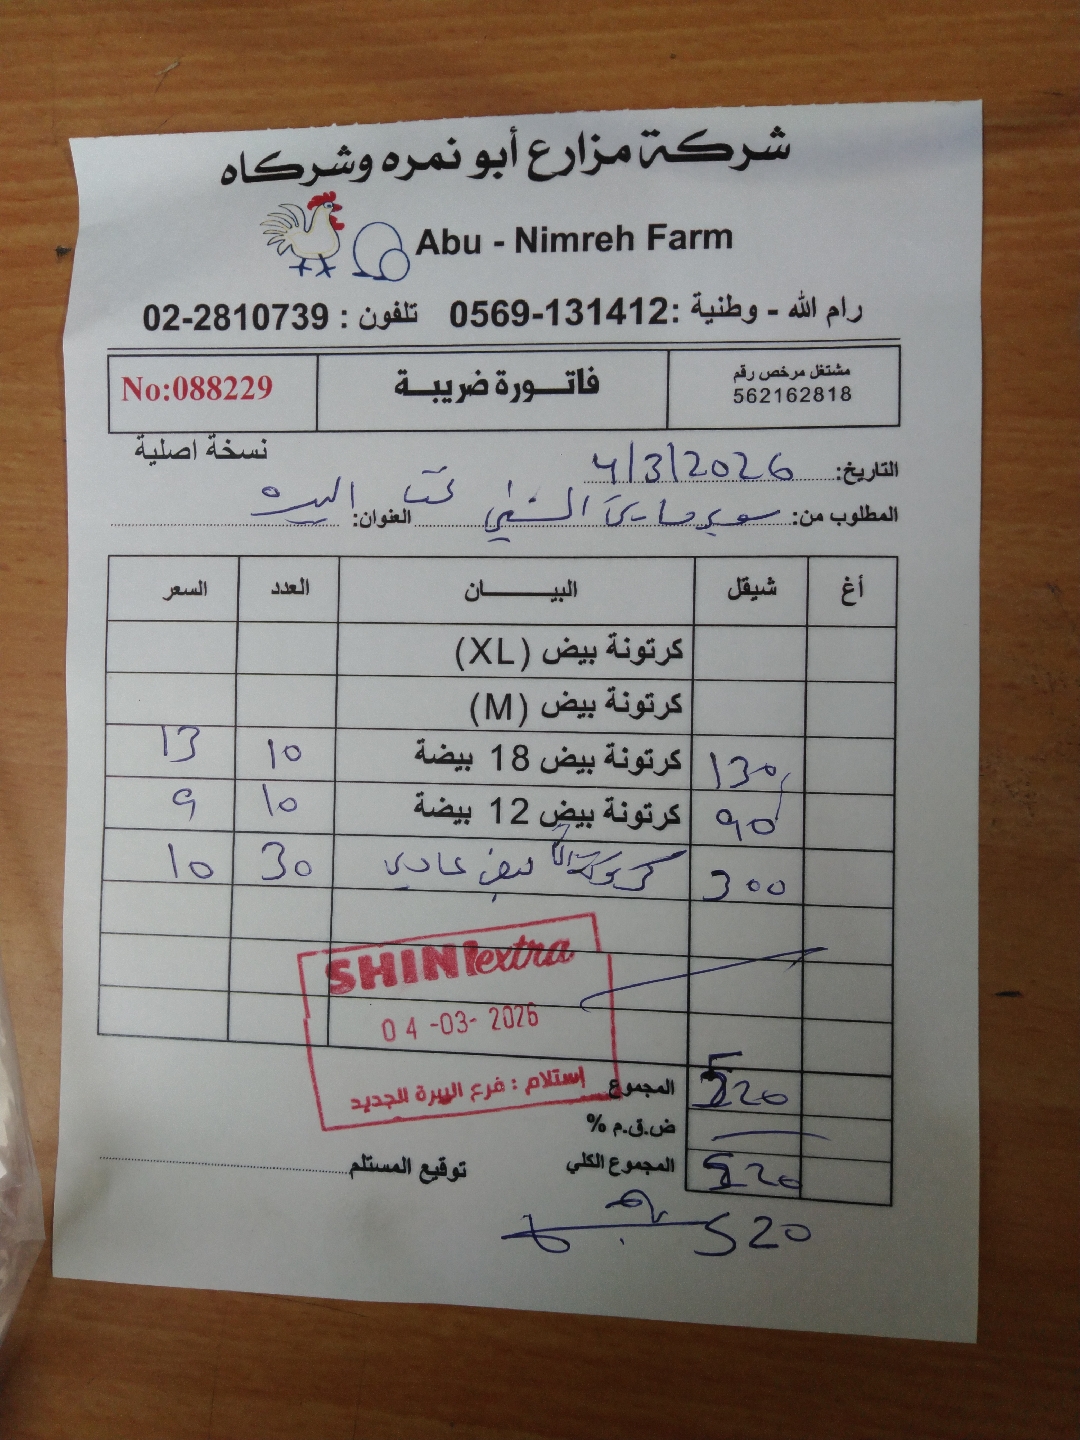 شركة مزارع أبو نمره وشركاه
Abu - Nimreh Farm
رام الله - وطنية :0569-131412 تلفون : 02-2810739
مشتغل مرخص رقم
562162818
فاتورة ضريبة
No:088229
نسخة اصلية
التاريخ: 4/3/2026
المطلوب من: سوبر ماركت الشني العنوان: البيره
أغ شيقل البيــــان العدد السعر
كرتونة بيض (XL)
كرتونة بيض (M)
130 كرتونة بيض 18 بيضة 10 13
90 كرتونة بيض 12 بيضة 10 9
300 بيض عادي 30 10
SHINI extra
04-03-2026
إستلام : فرع البيرة الجديد
المجموع 520
ض.ق.م %
المجموع الكلي 520
توقيع المستلم
520